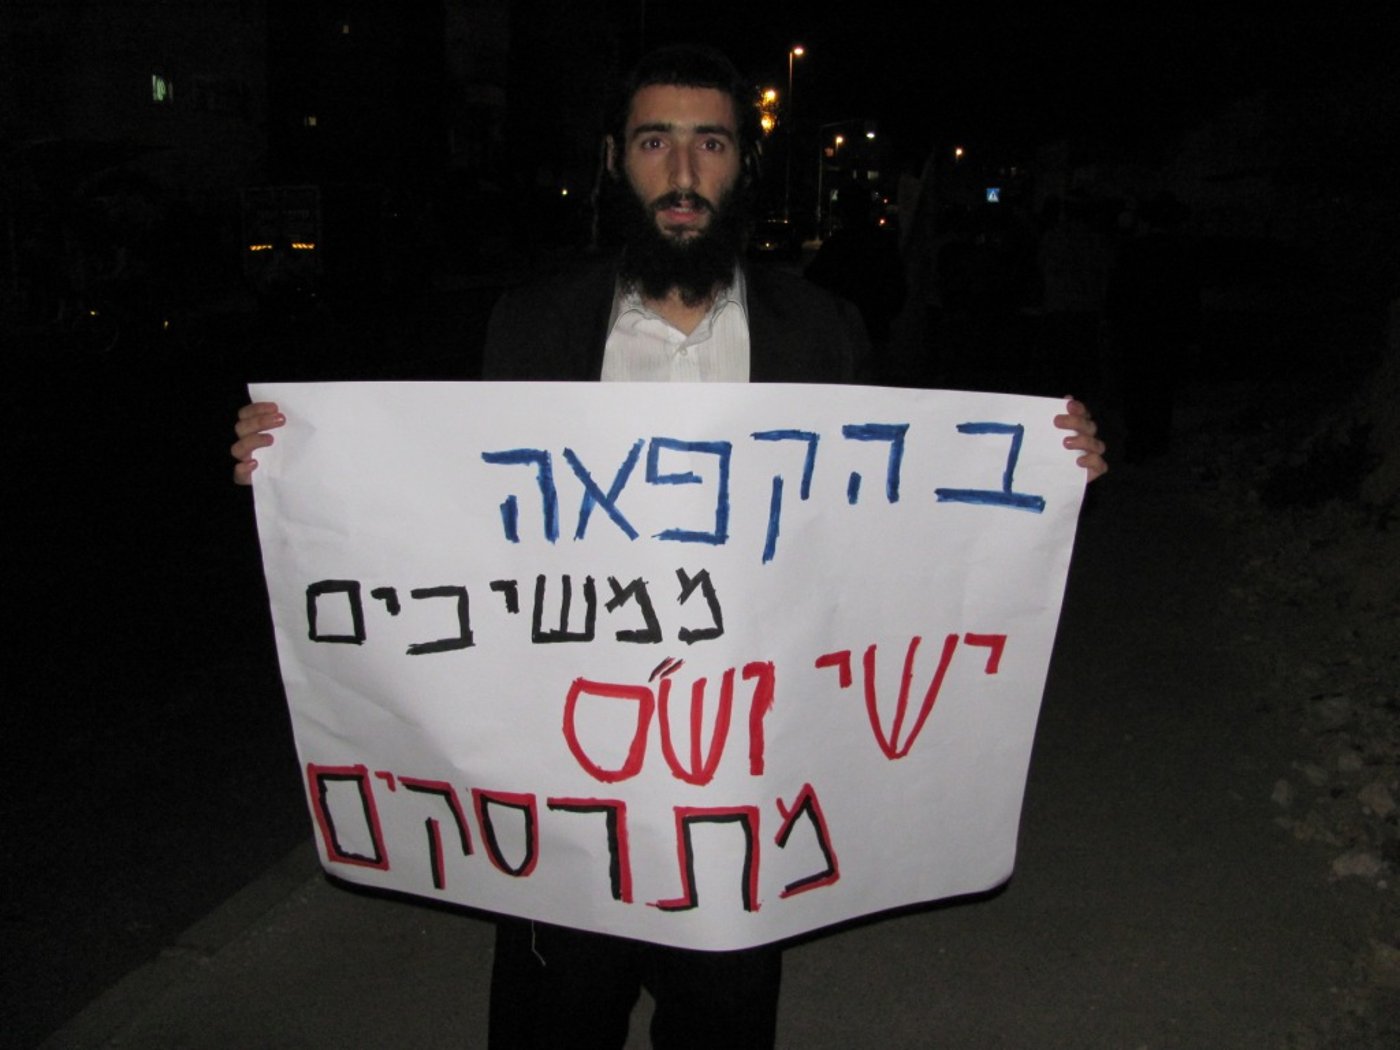 בהקפאה
ממשיכים
ישי וש"ס
מתרסקים